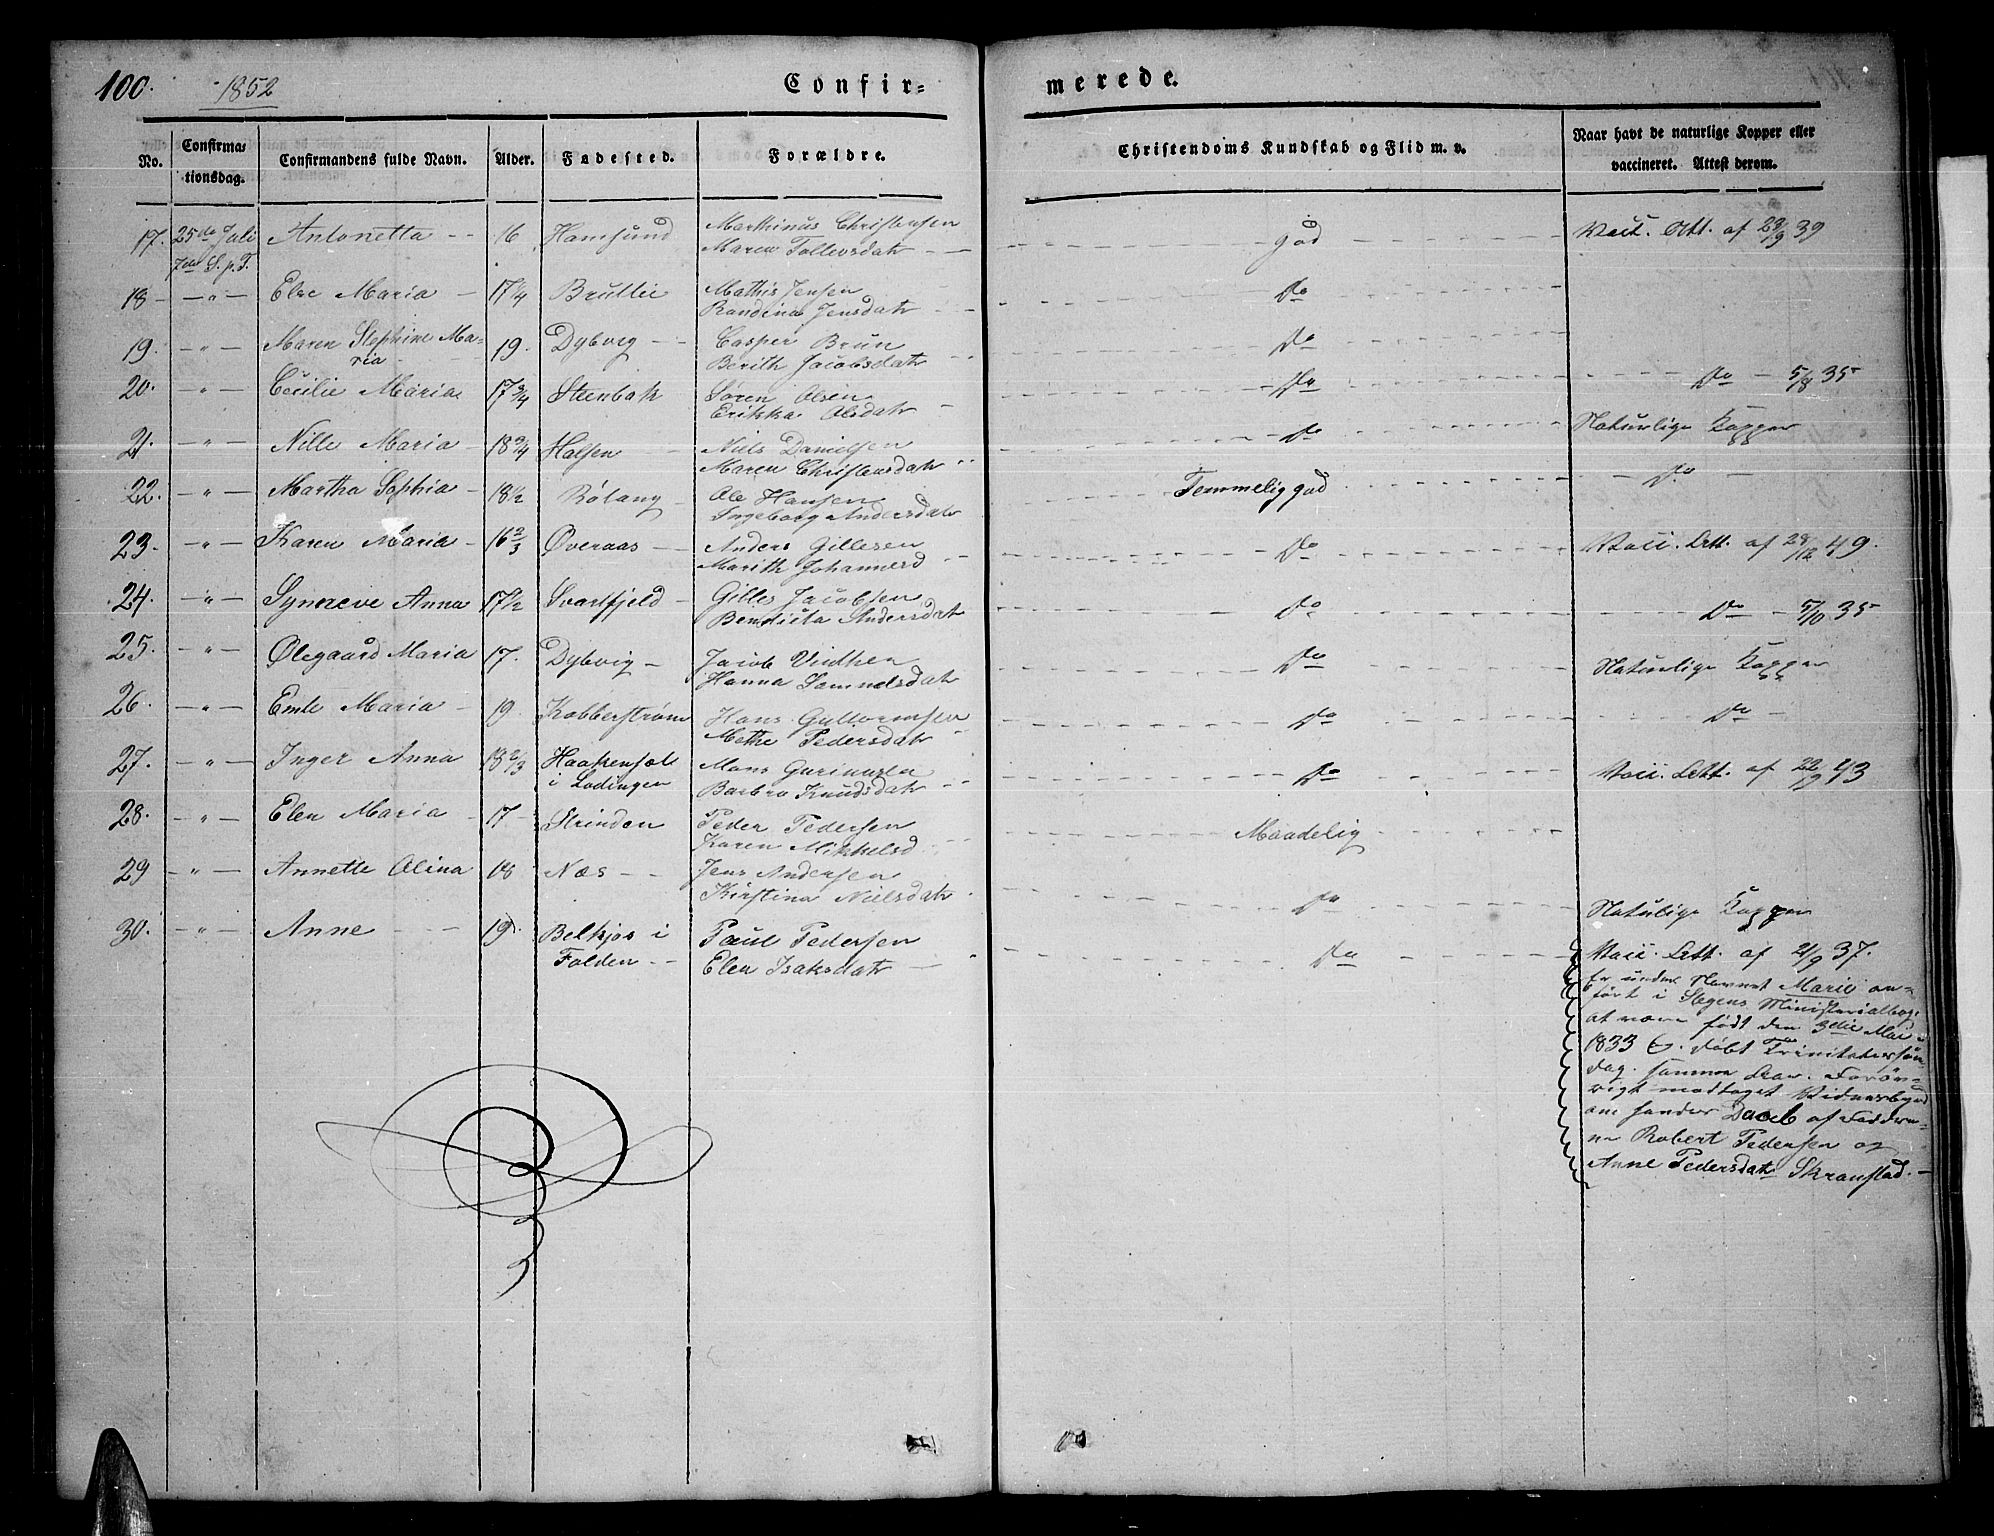 100. 1852 Confir= merede.
No. Confirma= tionsdag. Confirmandens fulde Navn. Alder. Fødested. Forældre. Christendoms Kundskab og Flid m. v. Naar havt de naturlige Kopper eller vaccineret. Attest derom.
17. 25de Juli Antonetta - - 16 Hamsund Marthinus Christensen god Vacc. Att. af 29/9 39
7de S. p. T. Maren Tollevsdatr
18 - " - Else Maria - 17 1/4 Mathis Jensen Do
Randina Jensdatr
19. - " - Maren Stephine Ma= 19. Dybvig - - Casper Brun Do
ria Berith Jacobsdatr
20. - " - Cecilie Maria 17 3/4 Steenbak Søren Olsen Do Do - 5/8 35
Erikka Olsdatr
21. - " - Nille Maria 18 3/4 Halsen Niels Danielsen Do Naturlige Kopper
Maren Christensdatr
22. - " - Martha Sophia - 18 1/2 Røtang - Ole Hansen Temmelig god Do -
Ingeborg Andersdatr
23. - " - Karen Maria - 16 2/3 Øveraas - Anders Gillesen Do Vacc. Att. af 28/12 49.
Marith Johannesd
24. - " - Synneve Anna 17 1/2 Svartfjeld - Gilles Jacobsen Do Do - 5/10 35
Bendicta Andersdatr
25. - " - Ølegaard Maria 17. Dybvig - Jacob Do Naturlige Kopper
Hanna Samuelsdatr
26. - " - Emle Maria - 19. Kobberstrøm Hans Guttormsen Do Do -
Methe Pedersdatr
27. - " - Inger Anna 18 2/3 Mons Do Vacc. Att. af 22/9 43
i Lødingen Barbro Knudsdatr
28. - " - Elen Maria - 17 - Strinden Peder Pedersen Maadelig
Karen Mikkelsd
29 - " - Annette Olina 18 Næs - - Jens Andersen Do Naturlige Kopper
Kirstina Nielsdatr
30. - " - Anne - - - 19. i Paul Pedersen Do Vacc. Att. af 21/9 37.
Folden - - Elen Isaksdatr
Er under Navnet Marie an=
ført i Stegens Ministerialbog
at være født den 3die Mai
1833 døbt Trinitatissøn
dag samme Aar.
modtaget
om hendes Daab af Faddre=
ne Robert Pedersen og
Anne Pedersdatr Skranstad. -